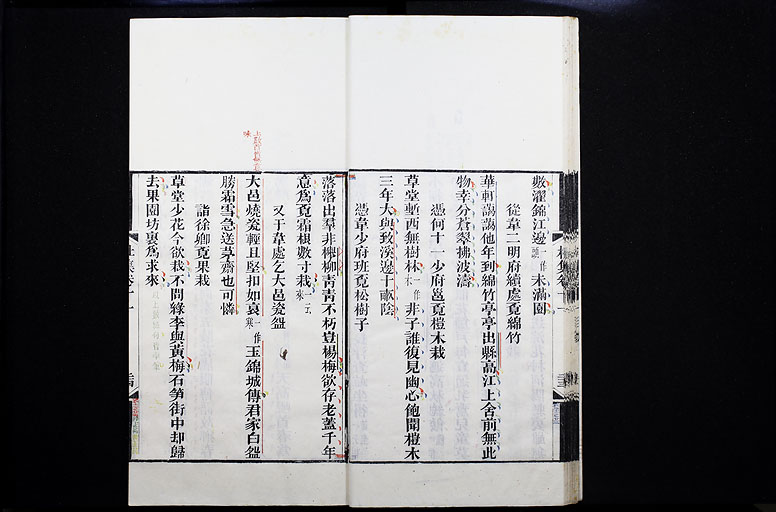 數濯錦江邊一作未滿園
從韋二明府續處覓綿竹
華軒藹藹他年到綿竹亭亭出縣高江上舍前無此
物幸分蒼翠拂波濤
憑何十一少府邕覓榿木栽
草堂塹西無樹林非子誰復見幽心飽聞榿木
三年大與致溪邊十畝陰
憑韋少府班覓松樹子
落落出羣非櫸柳青青不朽豈楊梅欲存老蓋千年
意爲覓霜根數寸栽一云來
又于韋處乞大邑瓷盌
大邑燒瓷輕且堅扣如哀一作寒玉錦城傳君家白盌
勝霜雪急送茅齋也可憐
詣徐卿覓果栽
草堂少花今欲栽不問綠李與黃梅石笋街中却歸
去果園坊裏爲求來